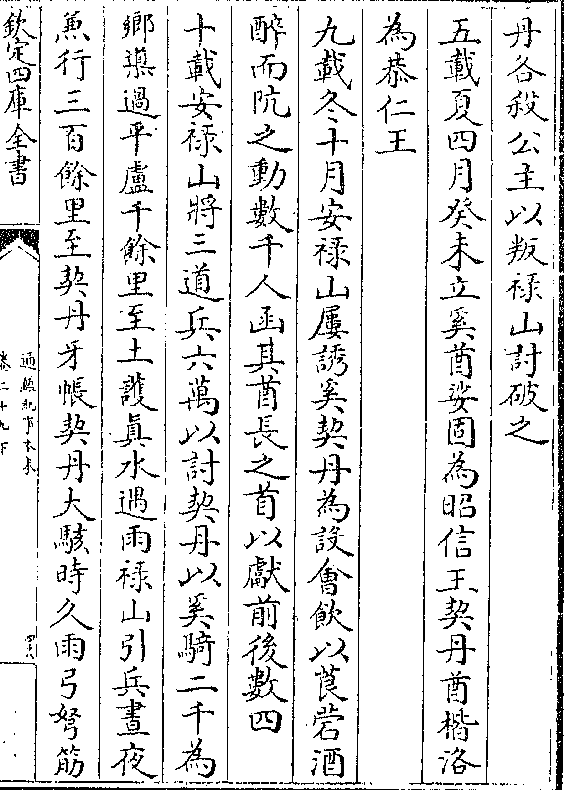 丹各殺公主以叛祿山討破之
五載夏四月癸未立奚酋娑固為昭信王契丹酋楷洛
為恭仁王
九載冬十月安祿山屢誘奚契丹為設㑹飲以莨菪酒
醉而阬之動數千人函其酋長之首以獻前後數四
十載安祿山將三道兵六萬以討契丹以奚騎二千為
鄉導過平盧千餘里至土護真水遇雨祿山引兵晝夜
兼行三百餘里至契丹牙帳契丹大駭時久雨弓弩筋
欽定四庫全書
通鑑紀事本末
卷二十九下